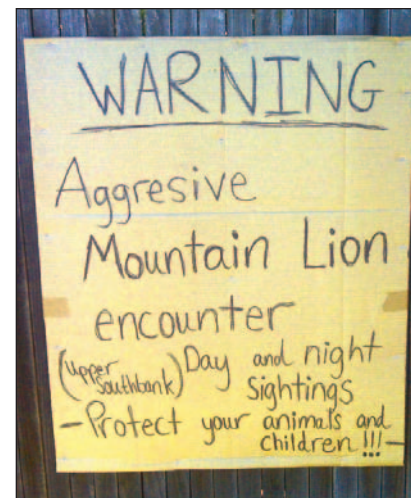 WARNING
Aggresive
Mountain Lion
encounter
(Upper Southbank) Day and night
Sightings
- Protect your animals and
children!!! -